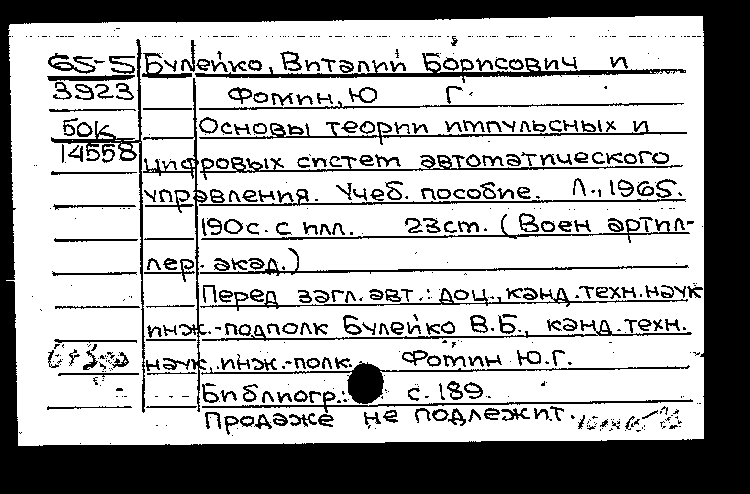 65-5 Булейко, Виталий Борисович и
3923 Фомин, Ю Г.
БОК Основы теории импульсных и
14558 цифровых систем автоматического
управления. Учеб. пособие. Л., 1965.
190с. с илл. 23см. (Воен артил-
лер. акад.)
Перед загл. авт.: доц., канд. техн. наук
инж.-подполк Булейко В.Б., канд. техн.
наук, инж.-полк. Фомин Ю.Г.
Библиогр.: с. 189.
Продаже не подлежит.